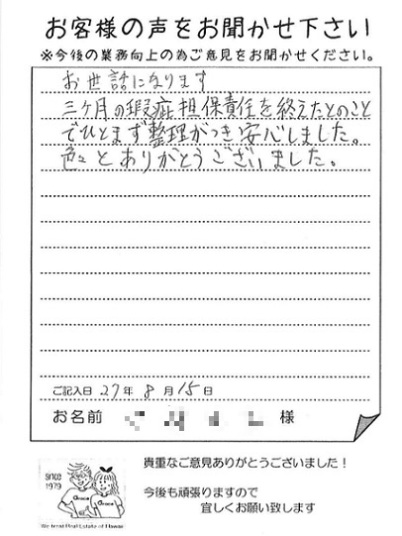 お客様の声をお聞かせ下さい
※今後の業務向上の為ご意見をお聞かせください。
お世話になります
三ヶ月の瑕疵担保責任を終えたとのこと
でひとまず整理がつき安心しました。
色々とありがとうございました。
ご記入日 27年 8月 15日
お名前 様
貴重なご意見ありがとうございました！
SINCE
1979
今後も頑張りますので
宜しくお願い致します
Grace Grace